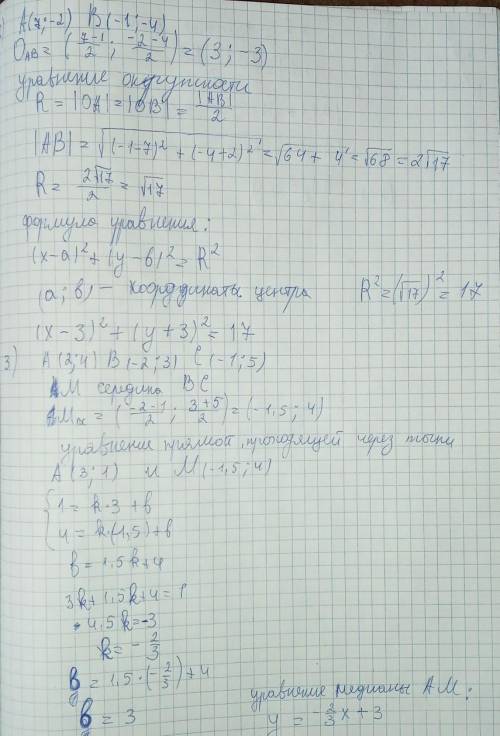 A(7;-2) B(-1;-4)
O_AB = (7-1/2 ; -2-4/2) = (3;-3)
уравнение окружности
R = |OA| = |OB| = |AB|/2
|AB| = √((-1-7)² + (-4+2)²) = √(64+4) = √68 = 2√17
R = 2√17/2 = √17
формула уравнения:
(x-a)² + (y-b)² = R²
(a;b) - координаты центра R² = (√17)² = 17
(x-3)² + (y+3)² = 17
3) A(3;4) B(-2;3) C(-1;5)
M середина BC
M = (-2-1/2 ; 3+5/2) = (-1,5;4)
уравнение прямой, проходящей через точки
A(3;1) и M(-1,5;4)
{ 1 = k·3 + b
4 = k·(-1,5) + b
b = 1,5k+4
3k+1,5k+4=1
4,5k=-3
k = -2/3
b = 1,5·(-2/3)+4
b = 3
уравнение медианы AM:
y = -2/3x + 3